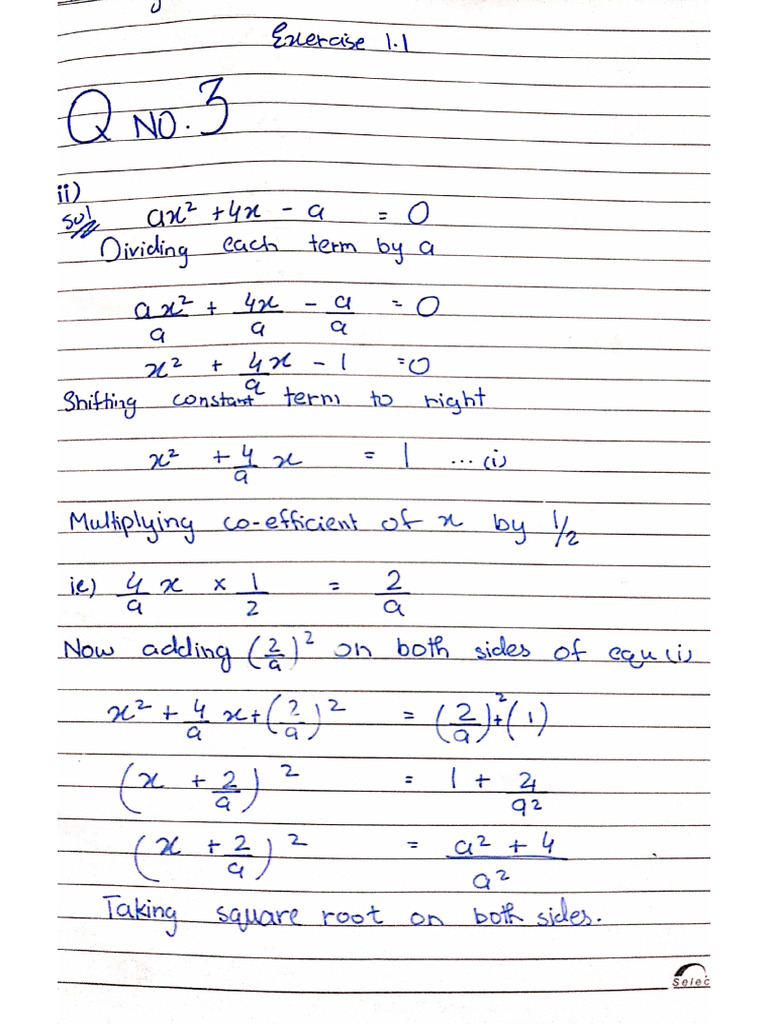 Exercise 1.1
Q NO. 3
ii)
Sol ax² + 4x - a = 0
Dividing each term by a
ax²/a + 4x/a - a/a = 0
x² + 4x/a - 1 = 0
Shifting constant term to right
x² + 4/a x = 1 ... (i)
Multiplying co-efficient of x by 1/2
ie) 4/a x × 1/2 = 2/a
Now adding (2/a)² on both sides of equ (i)
x² + 4/a x + (2/a)² = (2/a)² + (1)
(x + 2/a)² = 1 + 4/a²
(x + 2/a)² = a² + 4/a²
Taking square root on both sides.
Selec